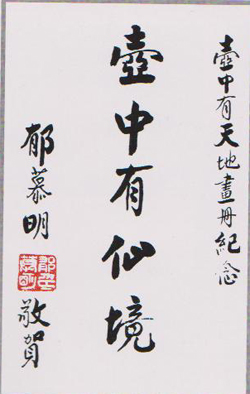 壺中有天地畫冊紀念
壺中有仙境
郁慕明
敬賀
郁慕明